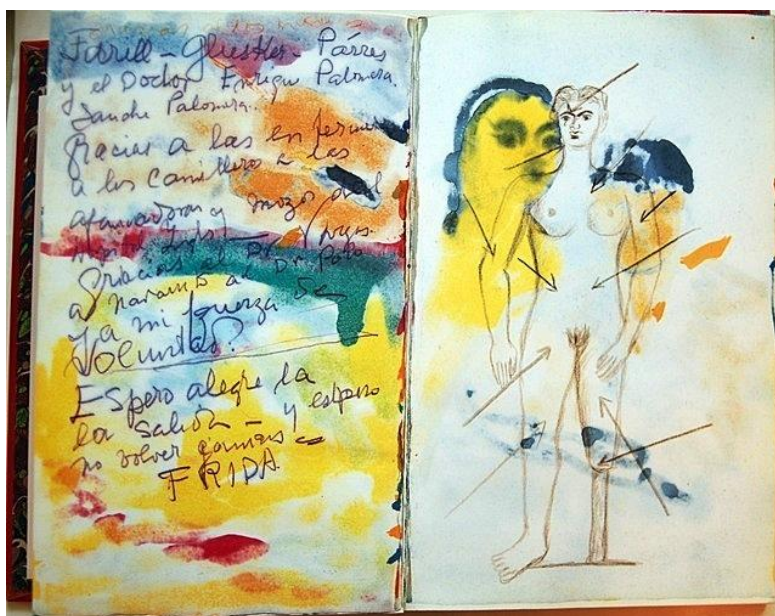 Farill - Glusker - Párres
y el Doctor Enrique Palomera
Sanche Palomera.
Gracias a las enferme
a los Camilleros a las
afanadoras y mozos del
Gracias al Dr Vargas
a Navarro al Dr Polo
y a mi fuerza de
Voluntad.
Espero alegre la
la salida - y espero
no volver jamás -
FRIDA